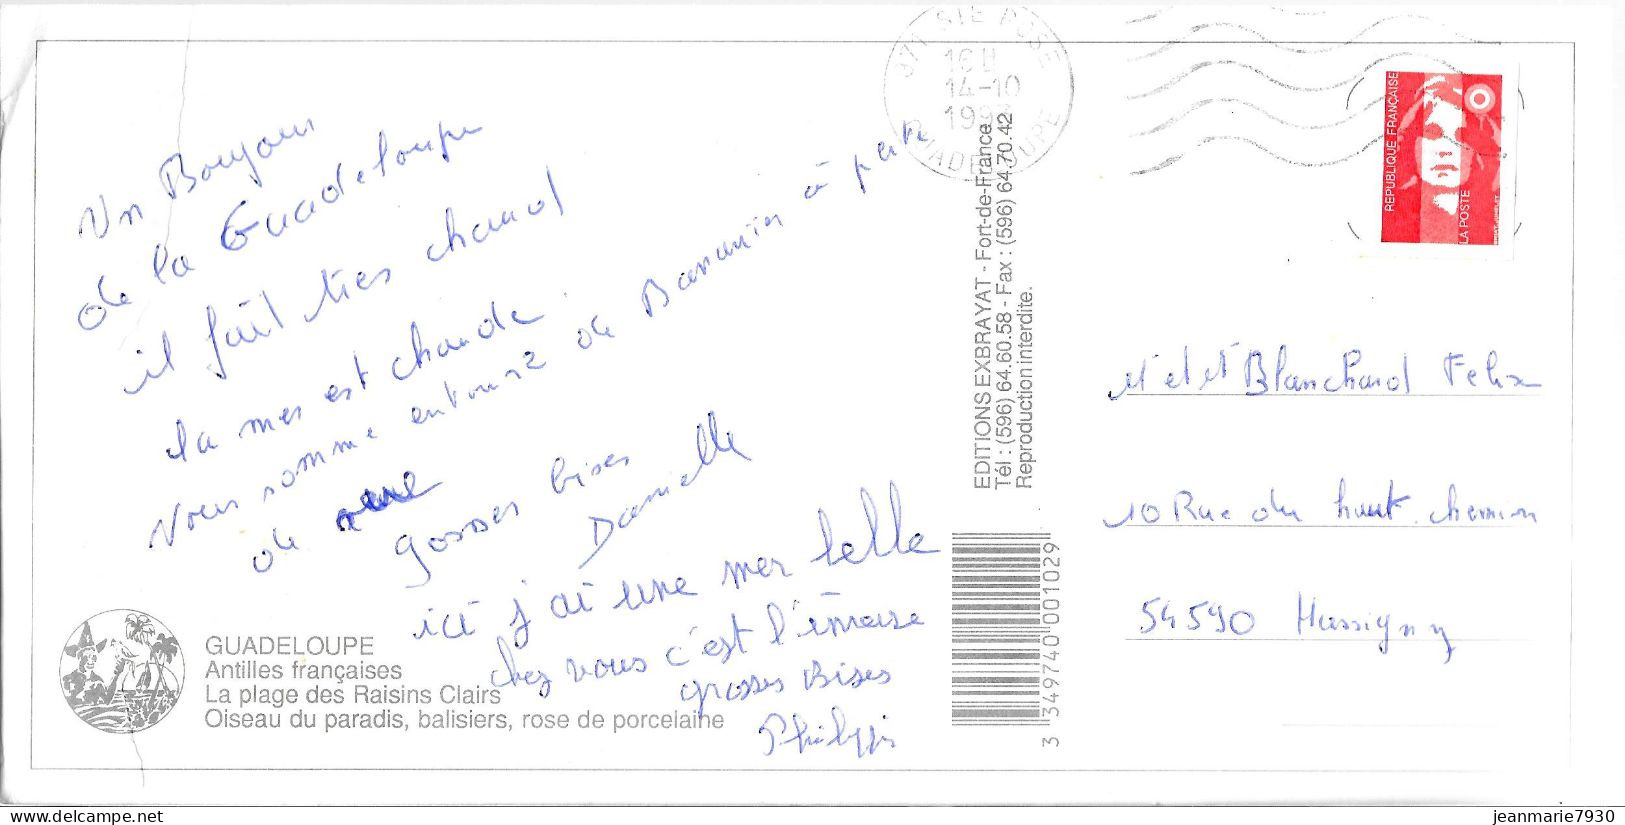 Un Bonjour
de la Guadeloupe
il fait tres chaud
la mer est chaude.
Nous somme entouré de Bananier à perte
de vue
grosses bises
Danielle
ici j'ai une mer belle
chez vous c'est l'inverse
grosses Bises
Philippe
GUADELOUPE
Antilles françaises
La plage des Raisins Clairs
Oiseau du paradis, balisiers, rose de porcelaine
EDITIONS EXBRAYAT - Fort-de-France
Tél : (596) 64.60.58 - Fax : (596) 64.70.42
Reproduction interdite.
3 349740 001029
STE ROSE
16H
14-10
GUADELOUPE
REPUBLIQUE FRANÇAISE
LA POSTE
Mr et Mr Blanchard Felix
10 Rue du haut chemin
54590 Hussigny
jeanmarie7930